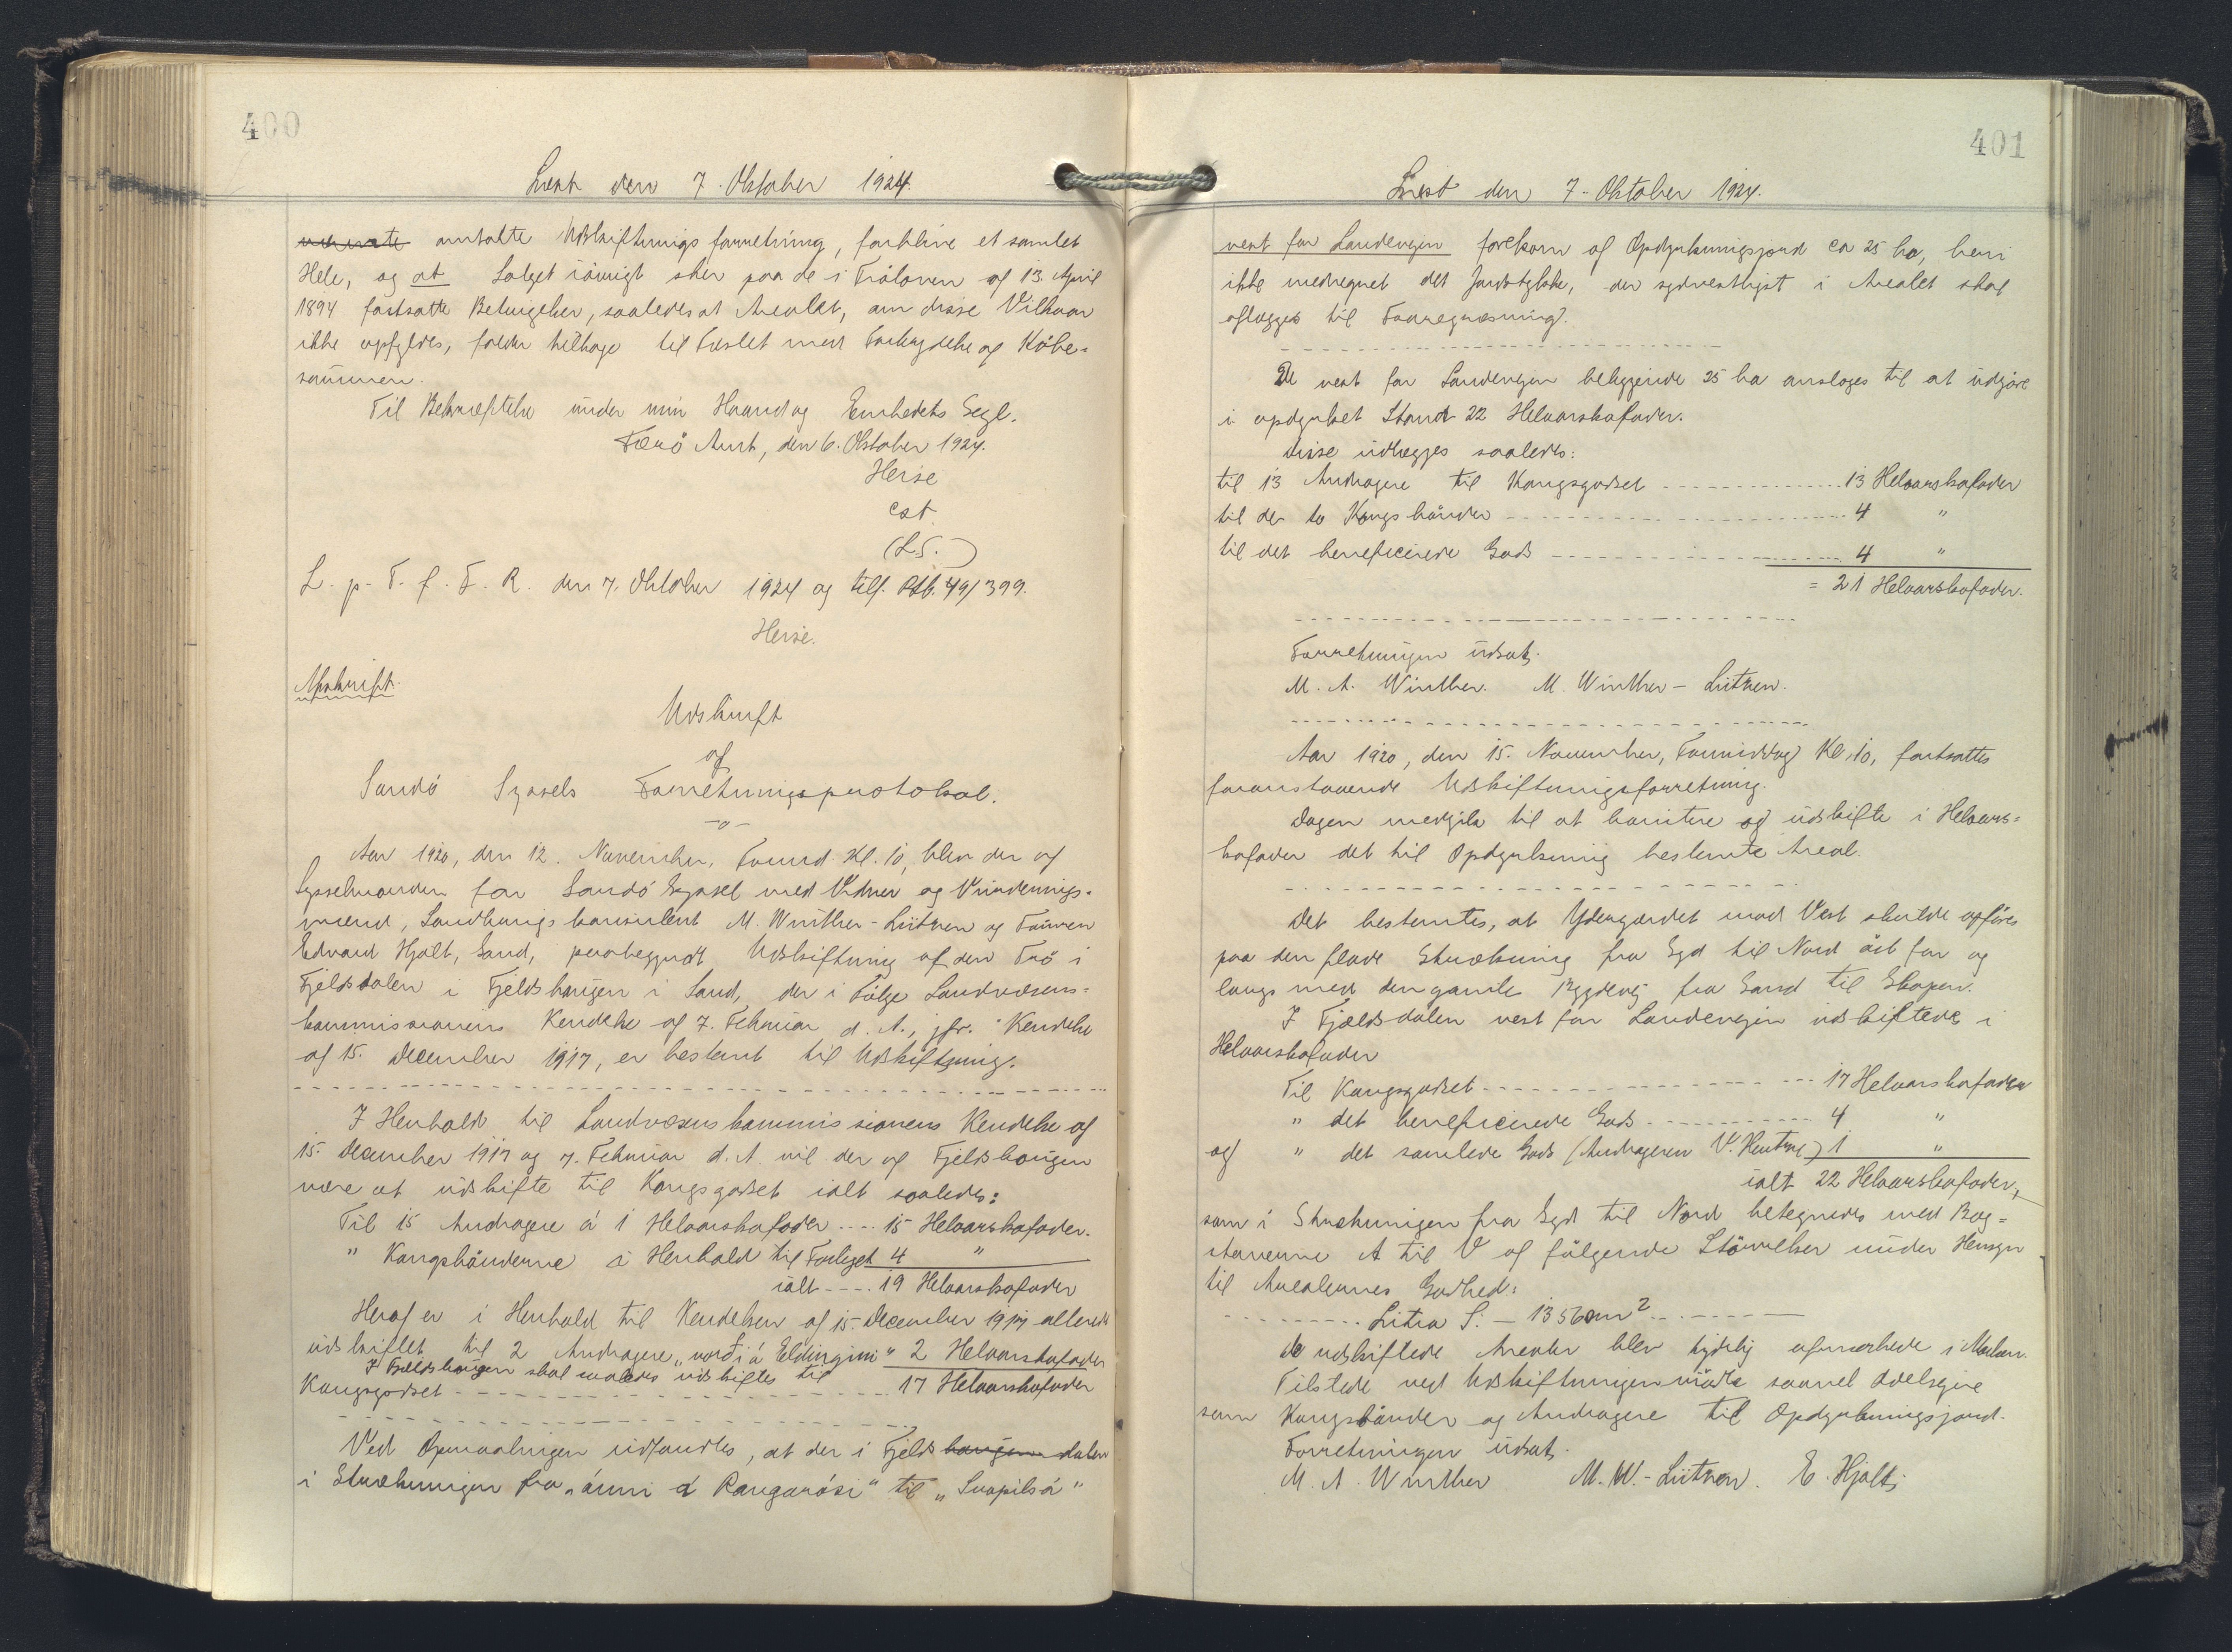 400
Læst den 7. Oktober 1924.
omtalte Udskiftningsforretning, forblive et samlet
Hele, og at Salget iøvrigt sker paa de i Trøloven af 13. April
1894 fastsatte Betingelser, saaledes at Arealet, om disse Vilkaar
ikke opfyldes, falder tilbage til Fæstet med Fortabelse af Købe-
summen.
Til Bekræftelse under min Haand og Embedets Segl.
Færø Amt, den 6. Oktober 1924.
Heise
cst.
(L.S.)
L. p. T. f. F. R. den 7. Oktober 1924 og tilf. Ptb. 49/399.
Heise.
Afskrift.
Udskrift
af
Sandø Syssels Forretningsprotokol.
-o-
Aar 1920, den 12. November, Formd. Kl. 10, blev der af
Sysselmanden for Sandø Syssel med Vidner og Vurderings-
mænd, Landbrugskonsulent M. Winther-Lützen og Tømrer
Edvard Hjalt, Sand, paabegyndt Udskiftning af den Trø i
Fjeldsdalen i Fjeldshaugen i Sand, der i Følge Landvæsens-
kommissionens Kendelse af 7. Februar d. A., jfr. Kendelse
af 15. December 1917, er bestemt til Udskiftning.
I Henhold til Landvæsenskommissionens Kendelse af
15. December 1917 og 7. Februar d. A. vil der af Fjeldshaugen
være at udskifte til Kongsgodset ialt saaledes:
Til 15 Andragere á 1 Helaarskofoder .... 15 Helaarskofoder.
" Kongsbønderne i Henhold til Forliget 4 "
ialt .... 19 Helaarskofoder
Heraf er i Henhold til Kendelsen af 15. December 1917 allerede
udskiftet til 2 Andragere "norði á Eldingini" 2 Helaarskofoder
I Fjeldshaugen skal saaledes udskiftes til
Kongsgodset 17 Helaarskofoder
Ved Opmaalingen udfandtes, at der i Fjelds haugen dalen
i Strækningen fra "ánni á Rangarási" til "Svapilsá"
401
Læst den 7. Oktober 1924.
vest for Landevejen forekom af Opdyrkningsjord ca 25 ha, heri
ikke medregnet det Jordstykke, der sydvestligst i Arealet skal
aflægges til Faaregræsning.
De vest for Landevejen beliggende 25 ha ansloges til at udgøre
i opdyrket Stand 22 Helaarskofoder.
Disse udlægges saaledes:
til 13 Andragere til Kongsgodset 13 Helaarskofoder
til de to Kongsbønder 4 "
til det beneficerede Gods 4 "
= 21 Helaarskofoder.
Forretningen udsat.
M. A. Winther. M. Winther-Lützen.
Aar 1920, den 15. November, Formiddag Kl. 10, fortsattes
foranstaaende Udskiftningsforretning.
Dagen medgik til at bonitere og udskifte i Helaars-
kofoder det til Opdyrkning bestemte Areal.
Det bestemtes, at Ydergærdet mod Vest skulde opføres
paa den flade Strækning fra Syd til Nord øst for og
langs med den gamle Bygdevej fra Sand til Skopen.
I Fjeldsdalen vest for Landevejen udskiftedes i
Helaarskofoder
Til Kongsgodset 17 Helaarskofoder
" det beneficerede Gods 4 "
og " det samlede Gods (Andrageren V. Hentze) 1 "
ialt 22 Helaarskofoder,
som i Strækningen fra Syd til Nord betegnedes med Bog-
staverne A til V af følgende Størrelser under Hensyn
til Arealernes Godhed:
Litra S. - 13560 m2
De udskiftede Arealer blev tydelig afmærkede i Marken.
Tilstede ved Udskiftningen mødte saavel Odelsejere
som Kongsbønder og Andragere til Opdyrkningsjord.
Forretningen udsat.
M. A. Winther M. W.-Lützen. E. Hjalt.